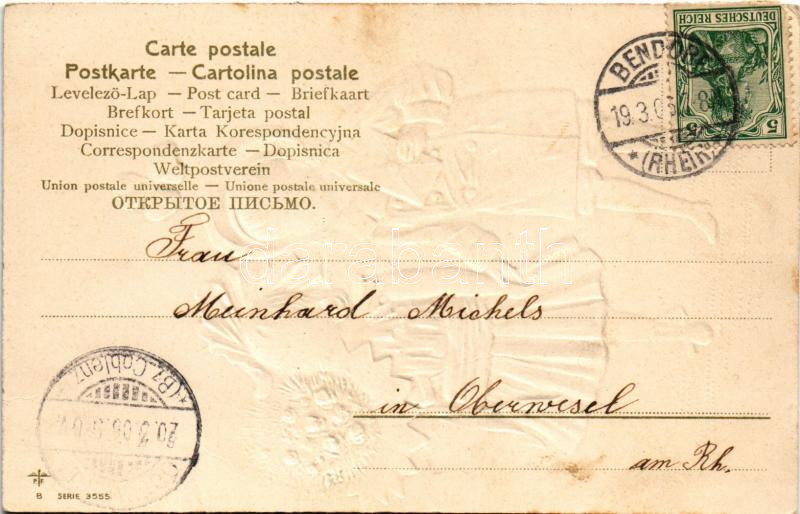 Carte postale
Postkarte — Cartolina postale
Levelezö-Lap — Post card — Briefkaart
Brefkort — Tarjeta postal
Dopisnice — Karta Korespondencyjna
Correspondenzkarte — Dopisnica
Weltpostverein
Union postale universelle — Unione postale universale
ОТКРЫТОЕ ПИСЬМО.
DEUTSCHES REICH
5 5
BENDORF
19.3.06
(RHEIN)
Frau
darabanth
Meinhard Michels
in Oberwesel
am Rh.
(Bz. Coblenz)
20.3.06
PF
B SERIE 3555